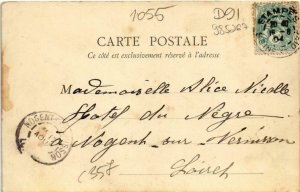 1055
D91
985267
ETAMPES
CARTE POSTALE
Ce côté est exclusivement réservé à l'adresse
Mademoiselle Alice Nicolle
Hotel du Nègre
à Nogent-sur-Vernisson
Loiret
NOGENT
(358